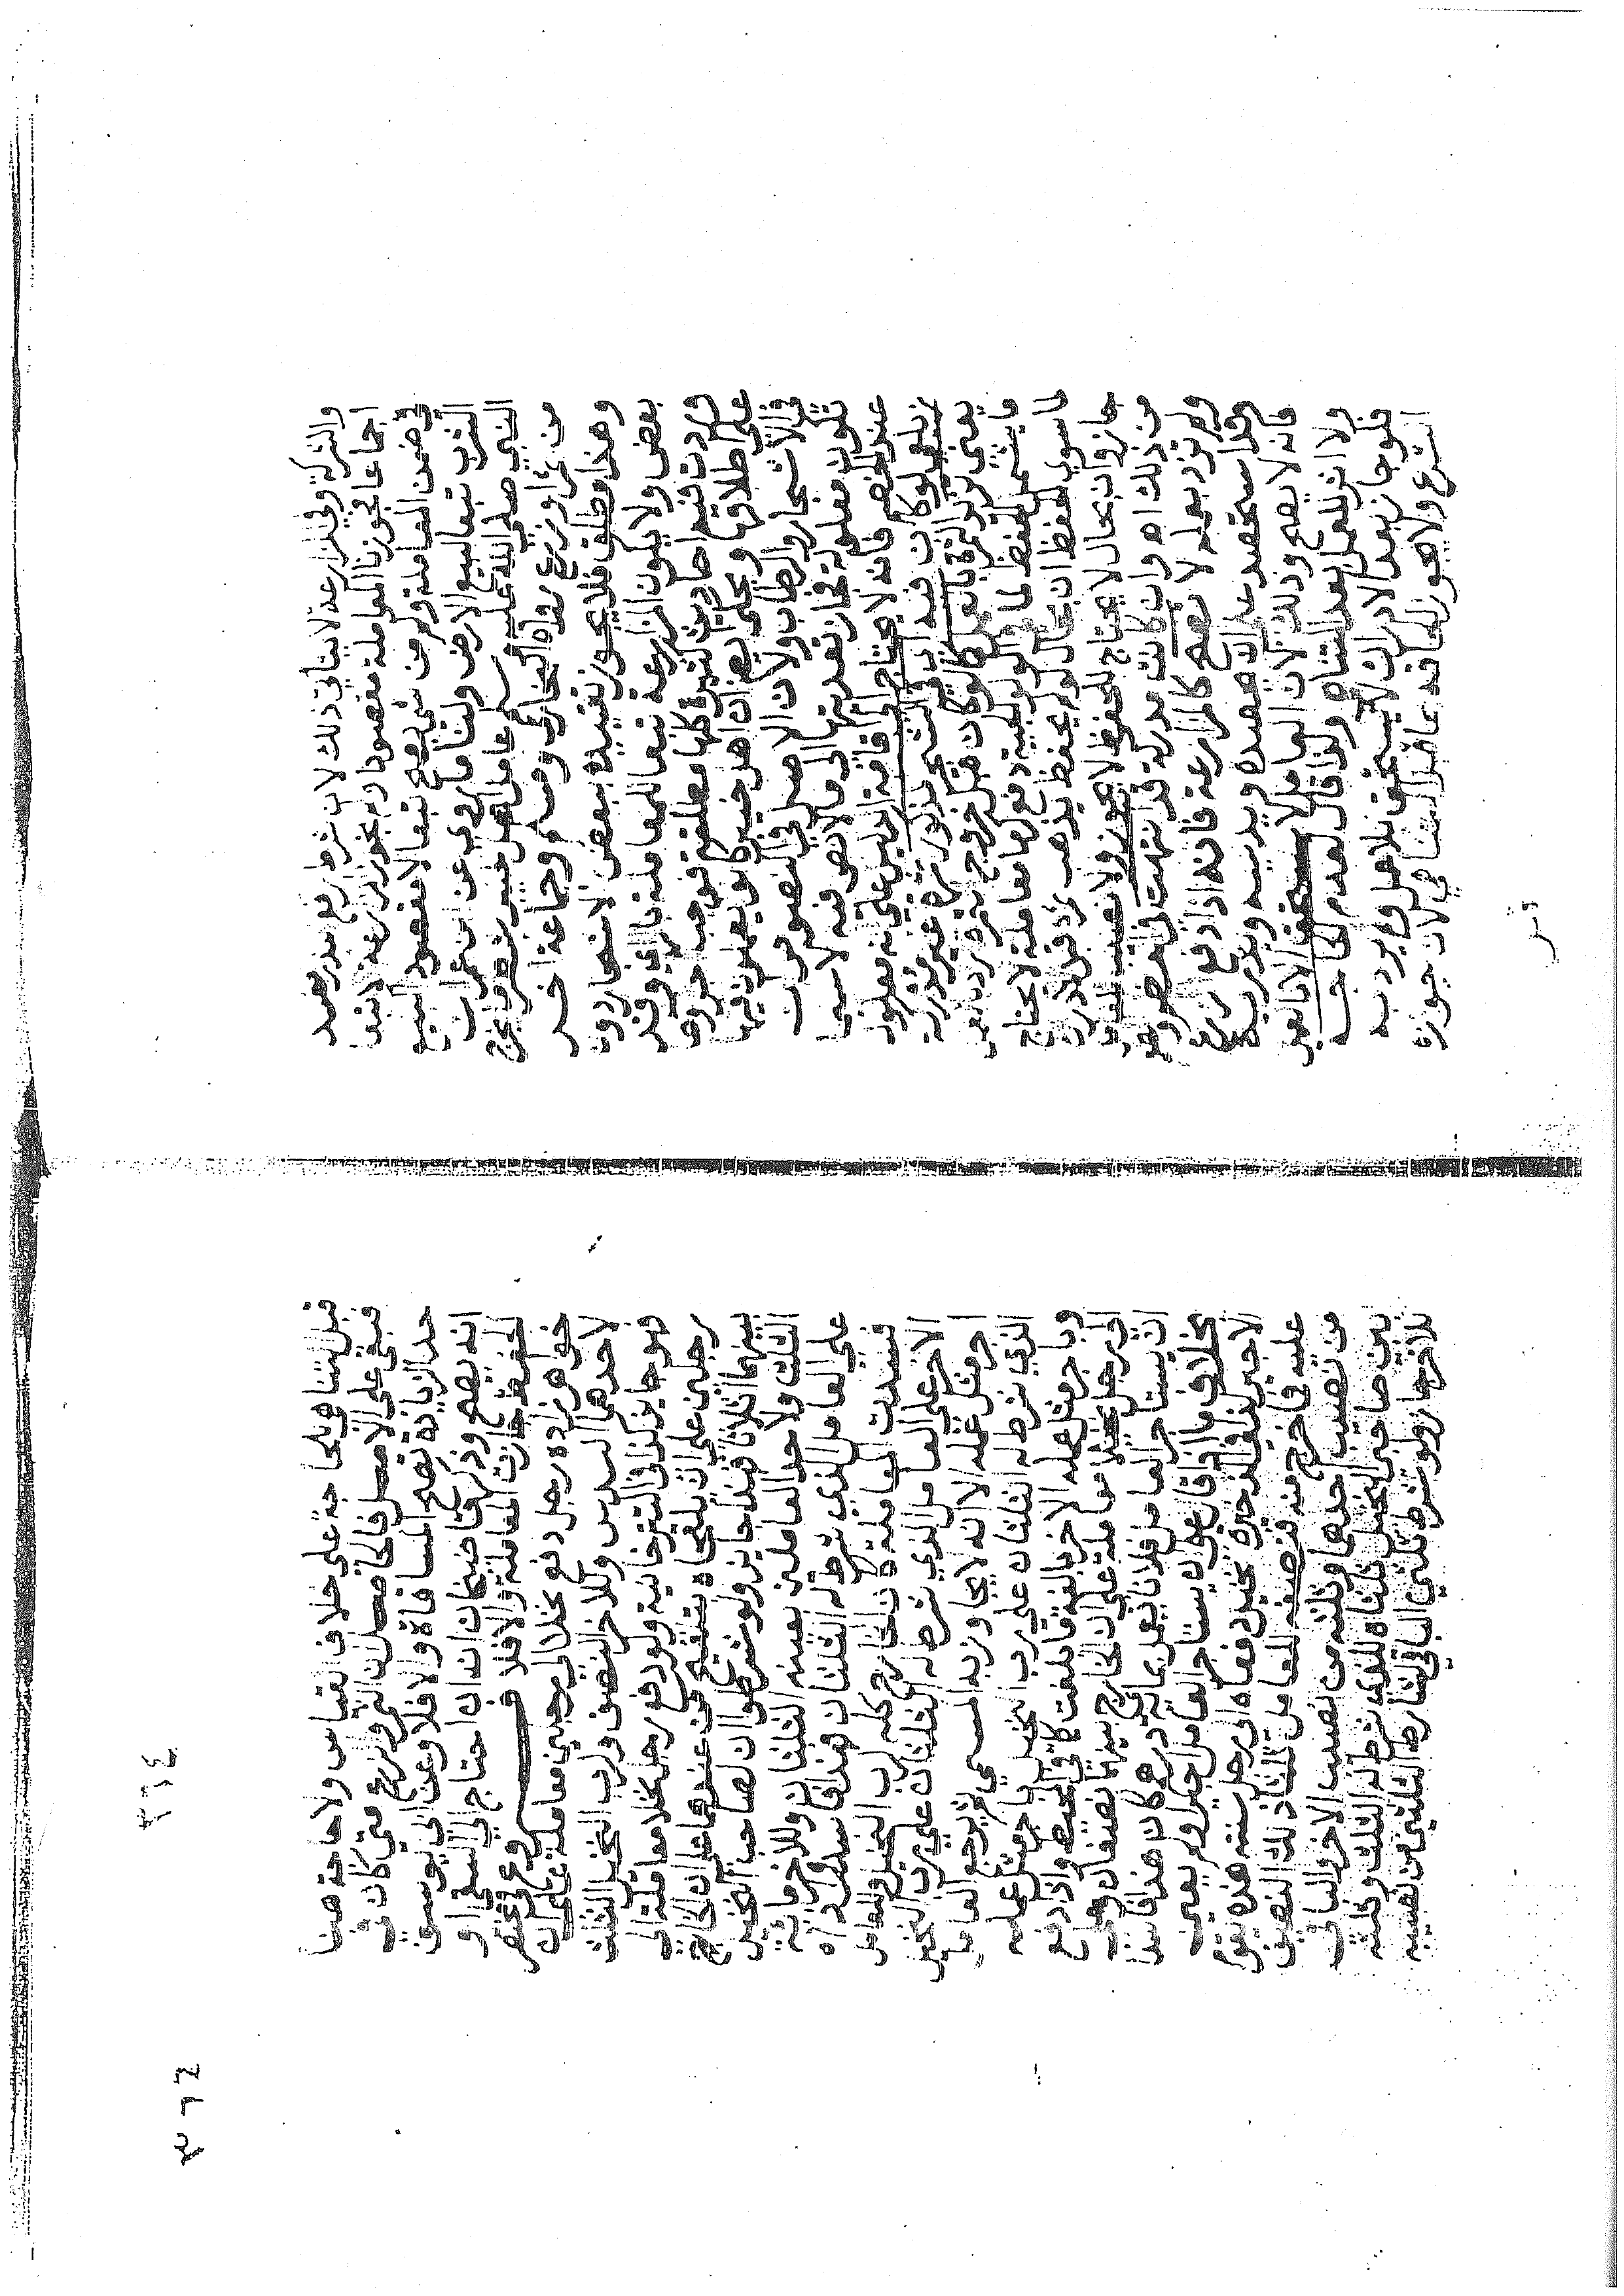 والشركة وفي المزارعة لا يتاتي ذلك لان شرط رفع بذر مفسد
اجماعا فجوزنا المعاملة مقصودا ولم نجوز المزارعة الا تبعا
في ضمن المعاملة وكم من شي يصح تبعا لا مقصودا كبيع
الشرب تبعا لبيع الارض ولنا ما روي عن ابن عمر ان
النبي صلي الله عليه وسلم عامل اهل خيبر بشطر ما يخرج
من ثمر او زرع رواه البخاري ومسلم وجماعة اخر
وهذا مطلق فلا يجوز تقييده ببعض الاشجار دون
بعض ولا يكون المزارعة تبعا للمعاملة بالراي وقد
وردت فيها احاديث كثيرة كلها مطلقة فوجب
علي اطلاقها ويحكي ايضا ان اهل خيبر كانوا يعملون فيها
في الاشجار والرطاب ولان الاصل في النصوص ان
تكون معلولة فجاز تعديتها الي ما لا نص فيه لا سيما
عند الخصم فانه لا يحتاج الي اقامة الدليل علي انه معلول
لو كان فيه اي في الشجر المذكور ثمرة غير مدركة
يعني تزيد الثمرة بالعمل كما لو كان قبل خروج ثمرة
ما يشمل الحفظ لما في الولوالجية دفع كرما معاملة لا يحتاج
لما سوي الحفظ ان بحال لو لم يحفظ يذهب ثمره قبل الادراك
جاز وان بحال لا يحتاج للحفظ لا يجوز ولا نصيب للعامل
من ذلك اه وان كانت مدركة قد انتهت
ولم تزد بعمله لا تصح كالمزارعة فانه اذا دفع الزرع
وقد استحصد علي ان يحصده ويدوسه ويذريه
فانه لا يصح وذلك لان العامل لا يستحق الا بالعمل
ولا اثر للعمل بعد التناهي ولذا قال لعدم الحاجة
فلو جاز بعد الادراك لاستحق بلا عمل ولم يرد به
الشرع ولا يجوز الحاقه بما قبل التناهي لان جوازه
٣٦٤
قبل التناهي للحاجة علي خلاف القياس ولا حاجة هنا
فبقي علي الاصل فالحاصل ان الثمر والزرع متي كان في
حد الزيادة تصح المساقاة والا فلا وعن ابي يوسف
انه يصح وذكر قاضيخان انه ان احتاج الي السقي او
الحفظ جازت المعاملة والا فلا فرع في مختصر
خواهر زاده رجل دفع نخلا الي رجلين معاملة علي ان
لاحدهما السدس وللاخر النصف ولرب النخيل الثلث
فهو جايز كذا في التترخانية ولو دفع رجل نخلا معاملة الي
رجلين علي ان يلقحاه بتلقيح من عندهما علي ان الخارج
بينهما اثلاثا فهذا جايز ولو شرطوا ان لصاحب النخيل
الثلث ولاحد العاملين بعينه الثلثان وللاخر ماية
علي العامل الذي شرط له الثلثان فهذا فاسد
فسدت المعاملة كان الخارج كله لرب النخيل وللعامل
الاخر علي العامل الذي شرط له الثلثان علي رب النخيل
اجر مثل عمله الا انه لا يجاوز به المسمي ثم يرجع العامل
الذي شرط له الثلثان علي رب النخيل باجر مثل عمله
وباجر مثل عمل الاخر بالغة ما بلغت كما في المحيط واذا دفع
الي رجل نخلا معاملة علي ان الخارج بينهما نصفان وعلي
ان يستاجر العامل فلانا يعمل بماية درهم كان هذا فاسدا
بخلاف ما اذا قال علي ان يستاجر العامل اجيرا ولم يعين
الاجير كذا في الذخيرة نخيل دفعاه الي رجل سنة هذه يقوم
عليه فما خرج منه فنصفه للعامل ثلثا ذلك النصف
من نصيب احدهما وثلثه من نصيب الاخر والباقي
بين صاحبي النخيل ثلثاه للذي شرط له الثلث وثلثه
للاخر جاز ولو شرط ثلثي الباقي لشارط الثلثين من نصيبه
٣٦٤